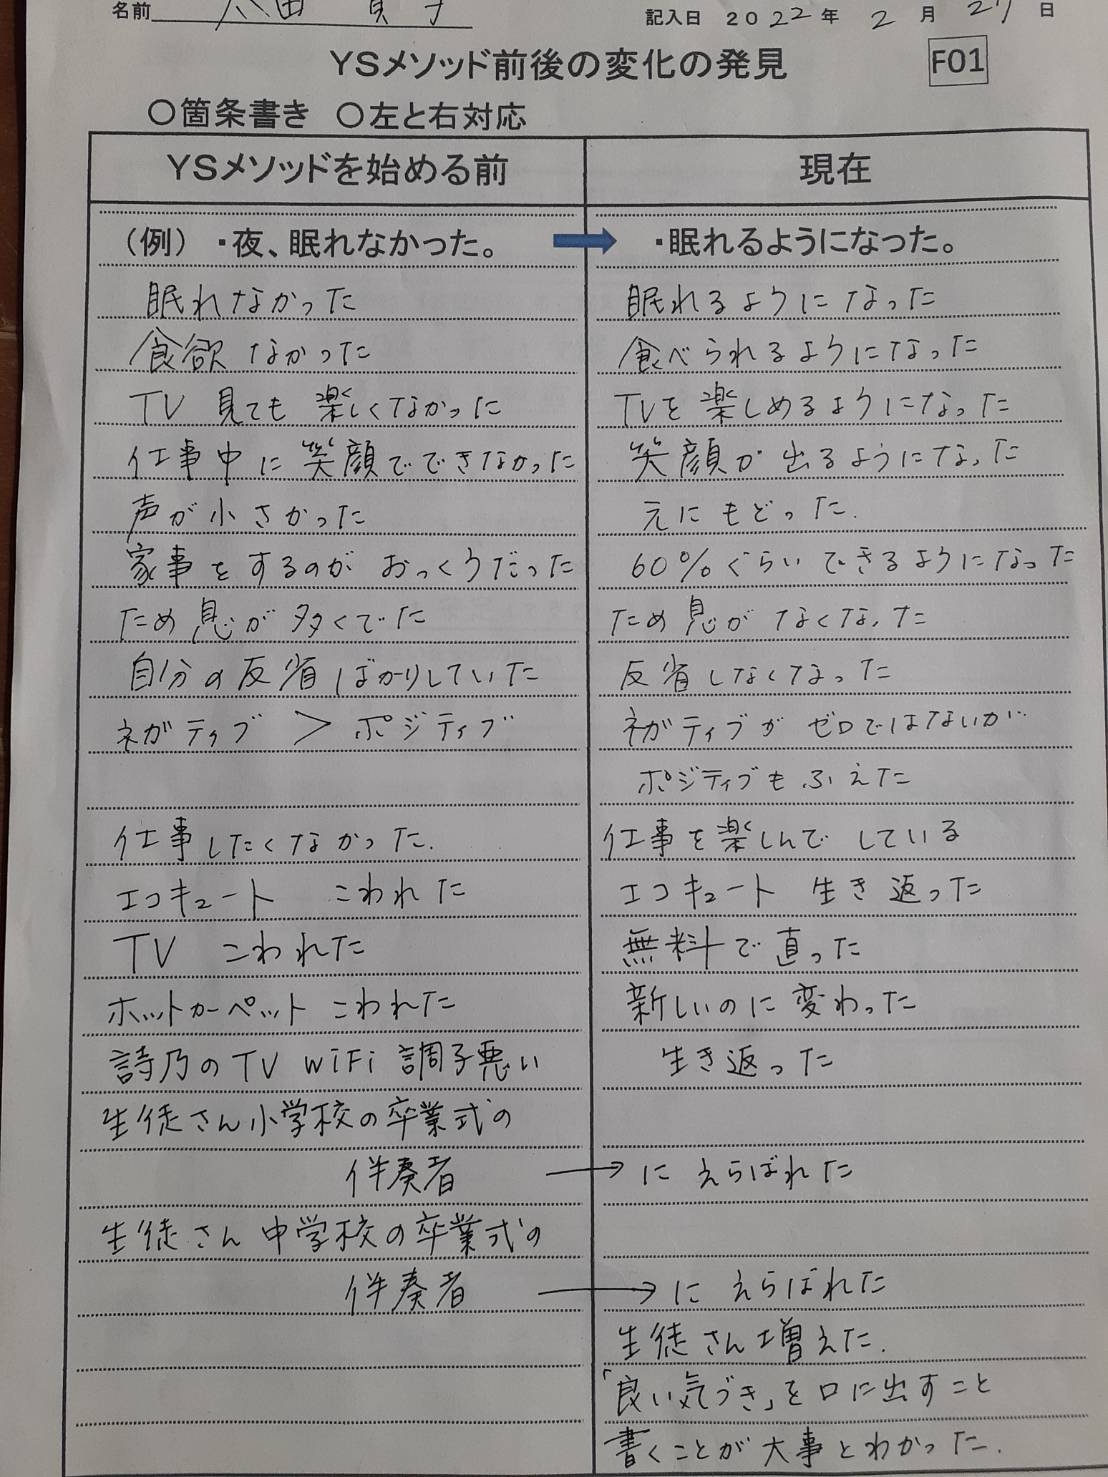 名前
記入日 2022年 2月 27日
YSメソッド前後の変化の発見 F01
○箇条書き ○左と右対応
YSメソッドを始める前 現在
（例）・夜、眠れなかった。 ・眠れるようになった。
眠れなかった 眠れるようになった
食欲なかった 食べられるようになった
TV 見ても 楽しくなかった TVを楽しめるようになった
仕事中に笑顔でできなかった 笑顔が出るようになった
声が小さかった 元にもどった.
家事をするのが おっくうだった 60%ぐらいできるようになった
ため息が多くでた ため息がなくなった
自分の反省ばかりしていた 反省しなくなった
ネガティブ > ポジティブ ネガティブが ゼロではないが
ポジティブもふえた
仕事したくなかった. 仕事を楽しんでしている
エコキュート こわれた エコキュート 生き返った
TV こわれた 無料で直った
ホットカーペット こわれた 新しいのに変わった
詩乃のTV WiFi 調子悪い 生き返った
生徒さん小学校の卒業式の
伴奏者 → に えらばれた
生徒さん 中学校の卒業式の
伴奏者 → に えらばれた
生徒さん増えた.
「良い気づき」を口に出すこと
書くことが大事とわかった.